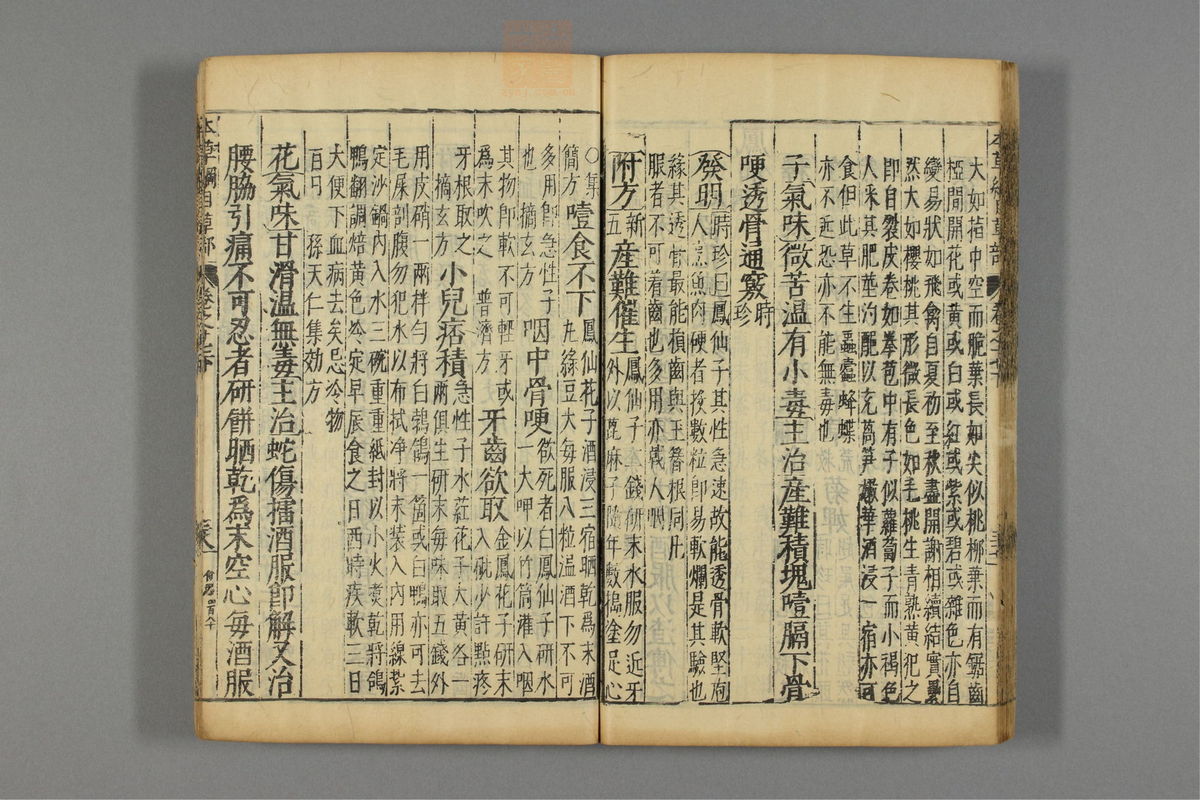 大如指中空而脆葉長而尖似桃柳葉而有鋸齒
椏間開花或黃或白或紅或紫或碧或雜色亦自
變易狀如飛禽自夏初至秋盡開謝相續結實纍
然大如櫻桃其形微長色如毛桃生青熟黃犯之
即自裂皮卷如拳苞中有子似蘿蔔子而小褐色
人采其肥莖汋䤄以充萵笋嫩華酒浸一宿亦可
食但此草不生蟲蠧蜂蝶
亦不近恐亦不能無毒也
子氣味微苦溫有小毒主治產難積塊噎膈下骨
哽透骨通竅時珍
發明時珍曰鳳仙子其性急速故能透骨軟堅庖
人烹魚肉硬者投數粒即易軟爛是其驗也
緣其透骨最能損齒與玉簪根同凡
服者不可着齒也多用亦戟人咽
附方新五產難催生鳳仙子二錢研末水服勿近牙
外以蓖麻子隨年數搗塗足心
○集
簡方噎食不下鳳仙花子酒浸三宿晒乾爲末酒
丸綠豆大每服八粒溫酒下不可
多用即急性子
也 摘玄方咽中骨哽欲死者白鳳仙子研水
一大呷以竹筒灌入咽
其物即軟不可經牙或
爲末吹之 普濟方牙齒欲取金鳳花子研末
入砒少許點疼
牙根取之
摘玄方小兒痞積急性子水葒花子大黃各一
兩俱生研末每味取五錢外
用皮硝一兩拌勻將白鵓鴿一箇或白鴨亦可去
毛屎剖腹勿犯水以布拭淨將末裝入內用線紮
定沙鍋內入水三碗重重紙封以小火煑乾將鴿
鴨翻調焙黃色冷定早辰食之日西時疾軟三日
大便下血病去矣忌冷物
百日 孫天仁集効方
花氣味甘滑溫無毒主治蛇傷擂酒服即解又治
腰脇引痛不可忍者研餅晒乾爲末空心每酒服